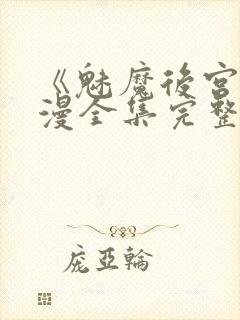 《魅魔後宮
漫全集完整
庞亞輪